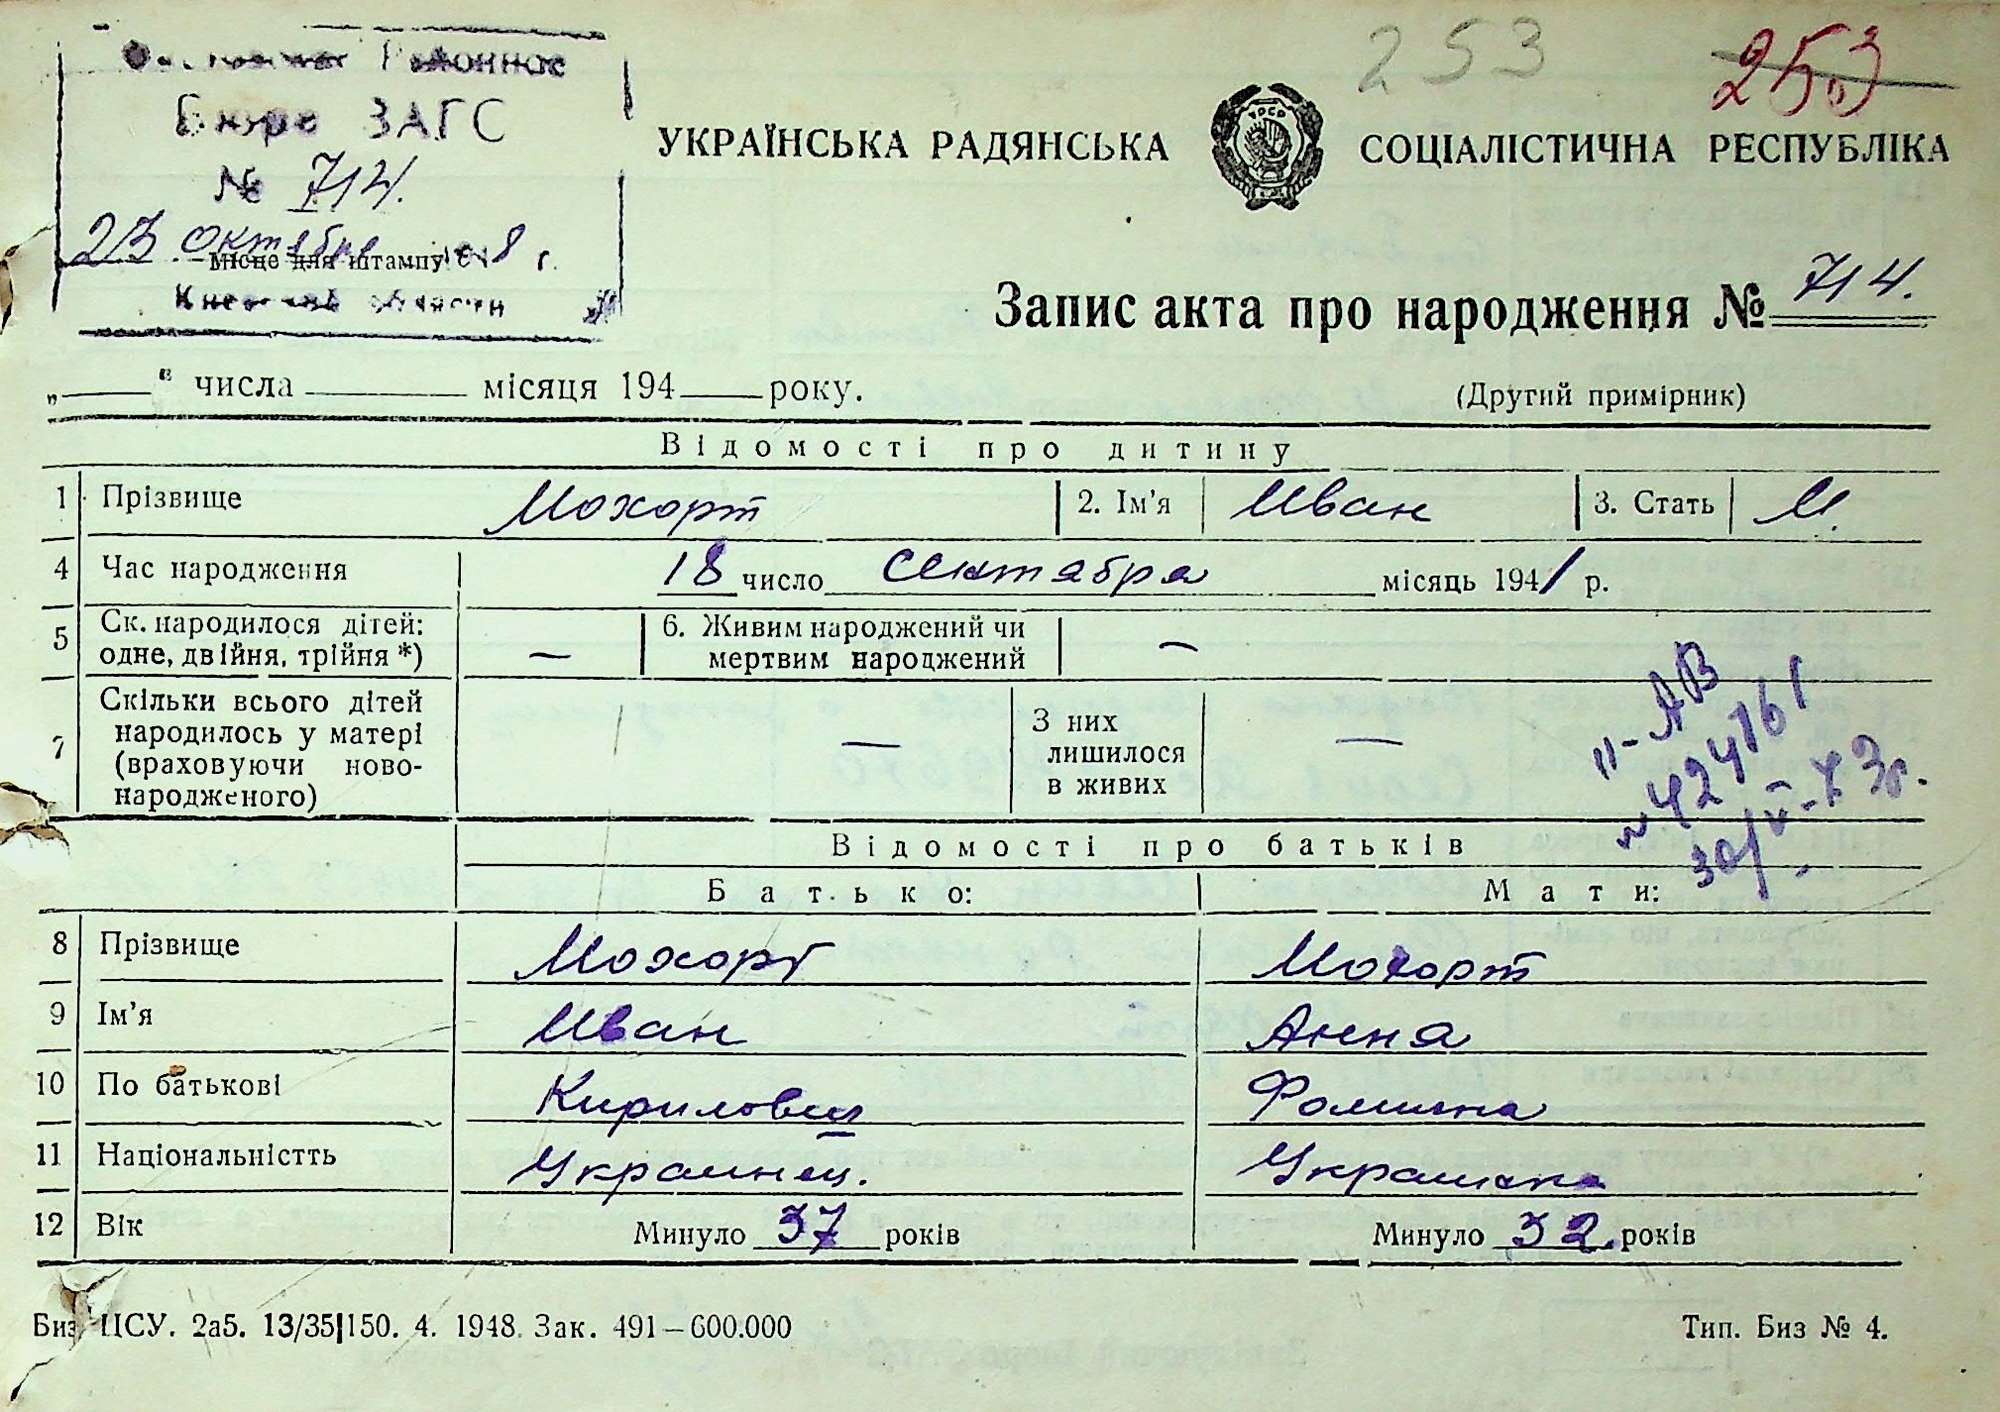 253 253
Районное
Бюро ЗАГС
№ 714.
УКРАЇНСЬКА РАДЯНСЬКА СОЦІАЛІСТИЧНА РЕСПУБЛІКА
УРСР
23 октября 8 г.
Місце для штампу
области
Запис акта про народження № 714.
„ “ числа місяця 194 року.
(Другий примірник)
Відомості про дитину
1 Прізвище Мохорт 2. Ім'я Иван 3. Стать М.
4 Час народження 18 число Сентября місяць 1941 р.
5 Ск. народилося дітей: одне, двійня, трійня *) — 6. Живим народжений чи мертвим народжений —
7 Скільки всього дітей народилось у матері (враховуючи ново-народженого) — З них лишилося в живих —
II-АВ
№ 424161
30/VI-73г.
Відомості про батьків
Батько: Мати:
8 Прізвище Мохорт Мохорт
9 Ім'я Иван Анна
10 По батькові Кирилович Фомична
11 Національністть Украинец. Украинка
12 Вік Минуло 37 років Минуло 32 років
Биз ЦСУ. 2а5. 13/35|150. 4. 1948. Зак. 491—600.000 Тип. Биз № 4.